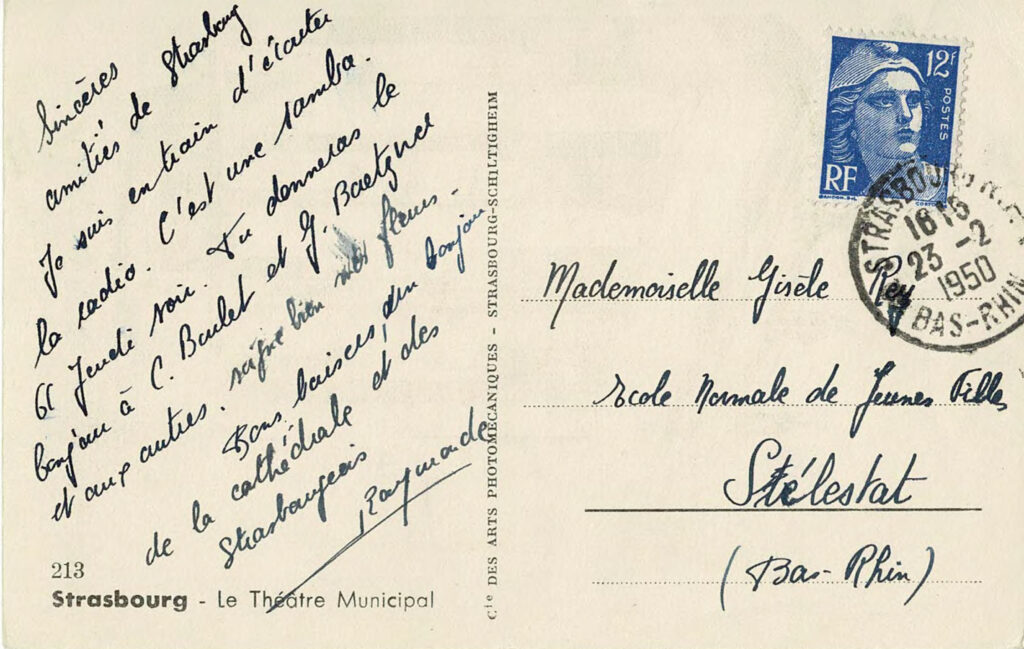 Sincères
amitiés de Strasbourg
Je suis en train d'écouter
la radio. C'est une samba.
Jeudi soir. Tu donneras le
bonjour à C. Boulet et G.
et aux autres. soigne bien nos fleurs.
Bons baisers, du bonjour
de la cathédrale et des
Strasbourgeois
Raymonde
213
Strasbourg - Le Théâtre Municipal
Cie DES ARTS PHOTOMECANIQUES - STRASBOURG-SCHILTIGHEIM
12F
POSTES
RF
STRASBOURG R.P.
1615
23 -2
1950
BAS-RHIN
Mademoiselle Gisèle Rey
Ecole Normale de Jeunes Filles
Stélestat
(Bas-Rhin)